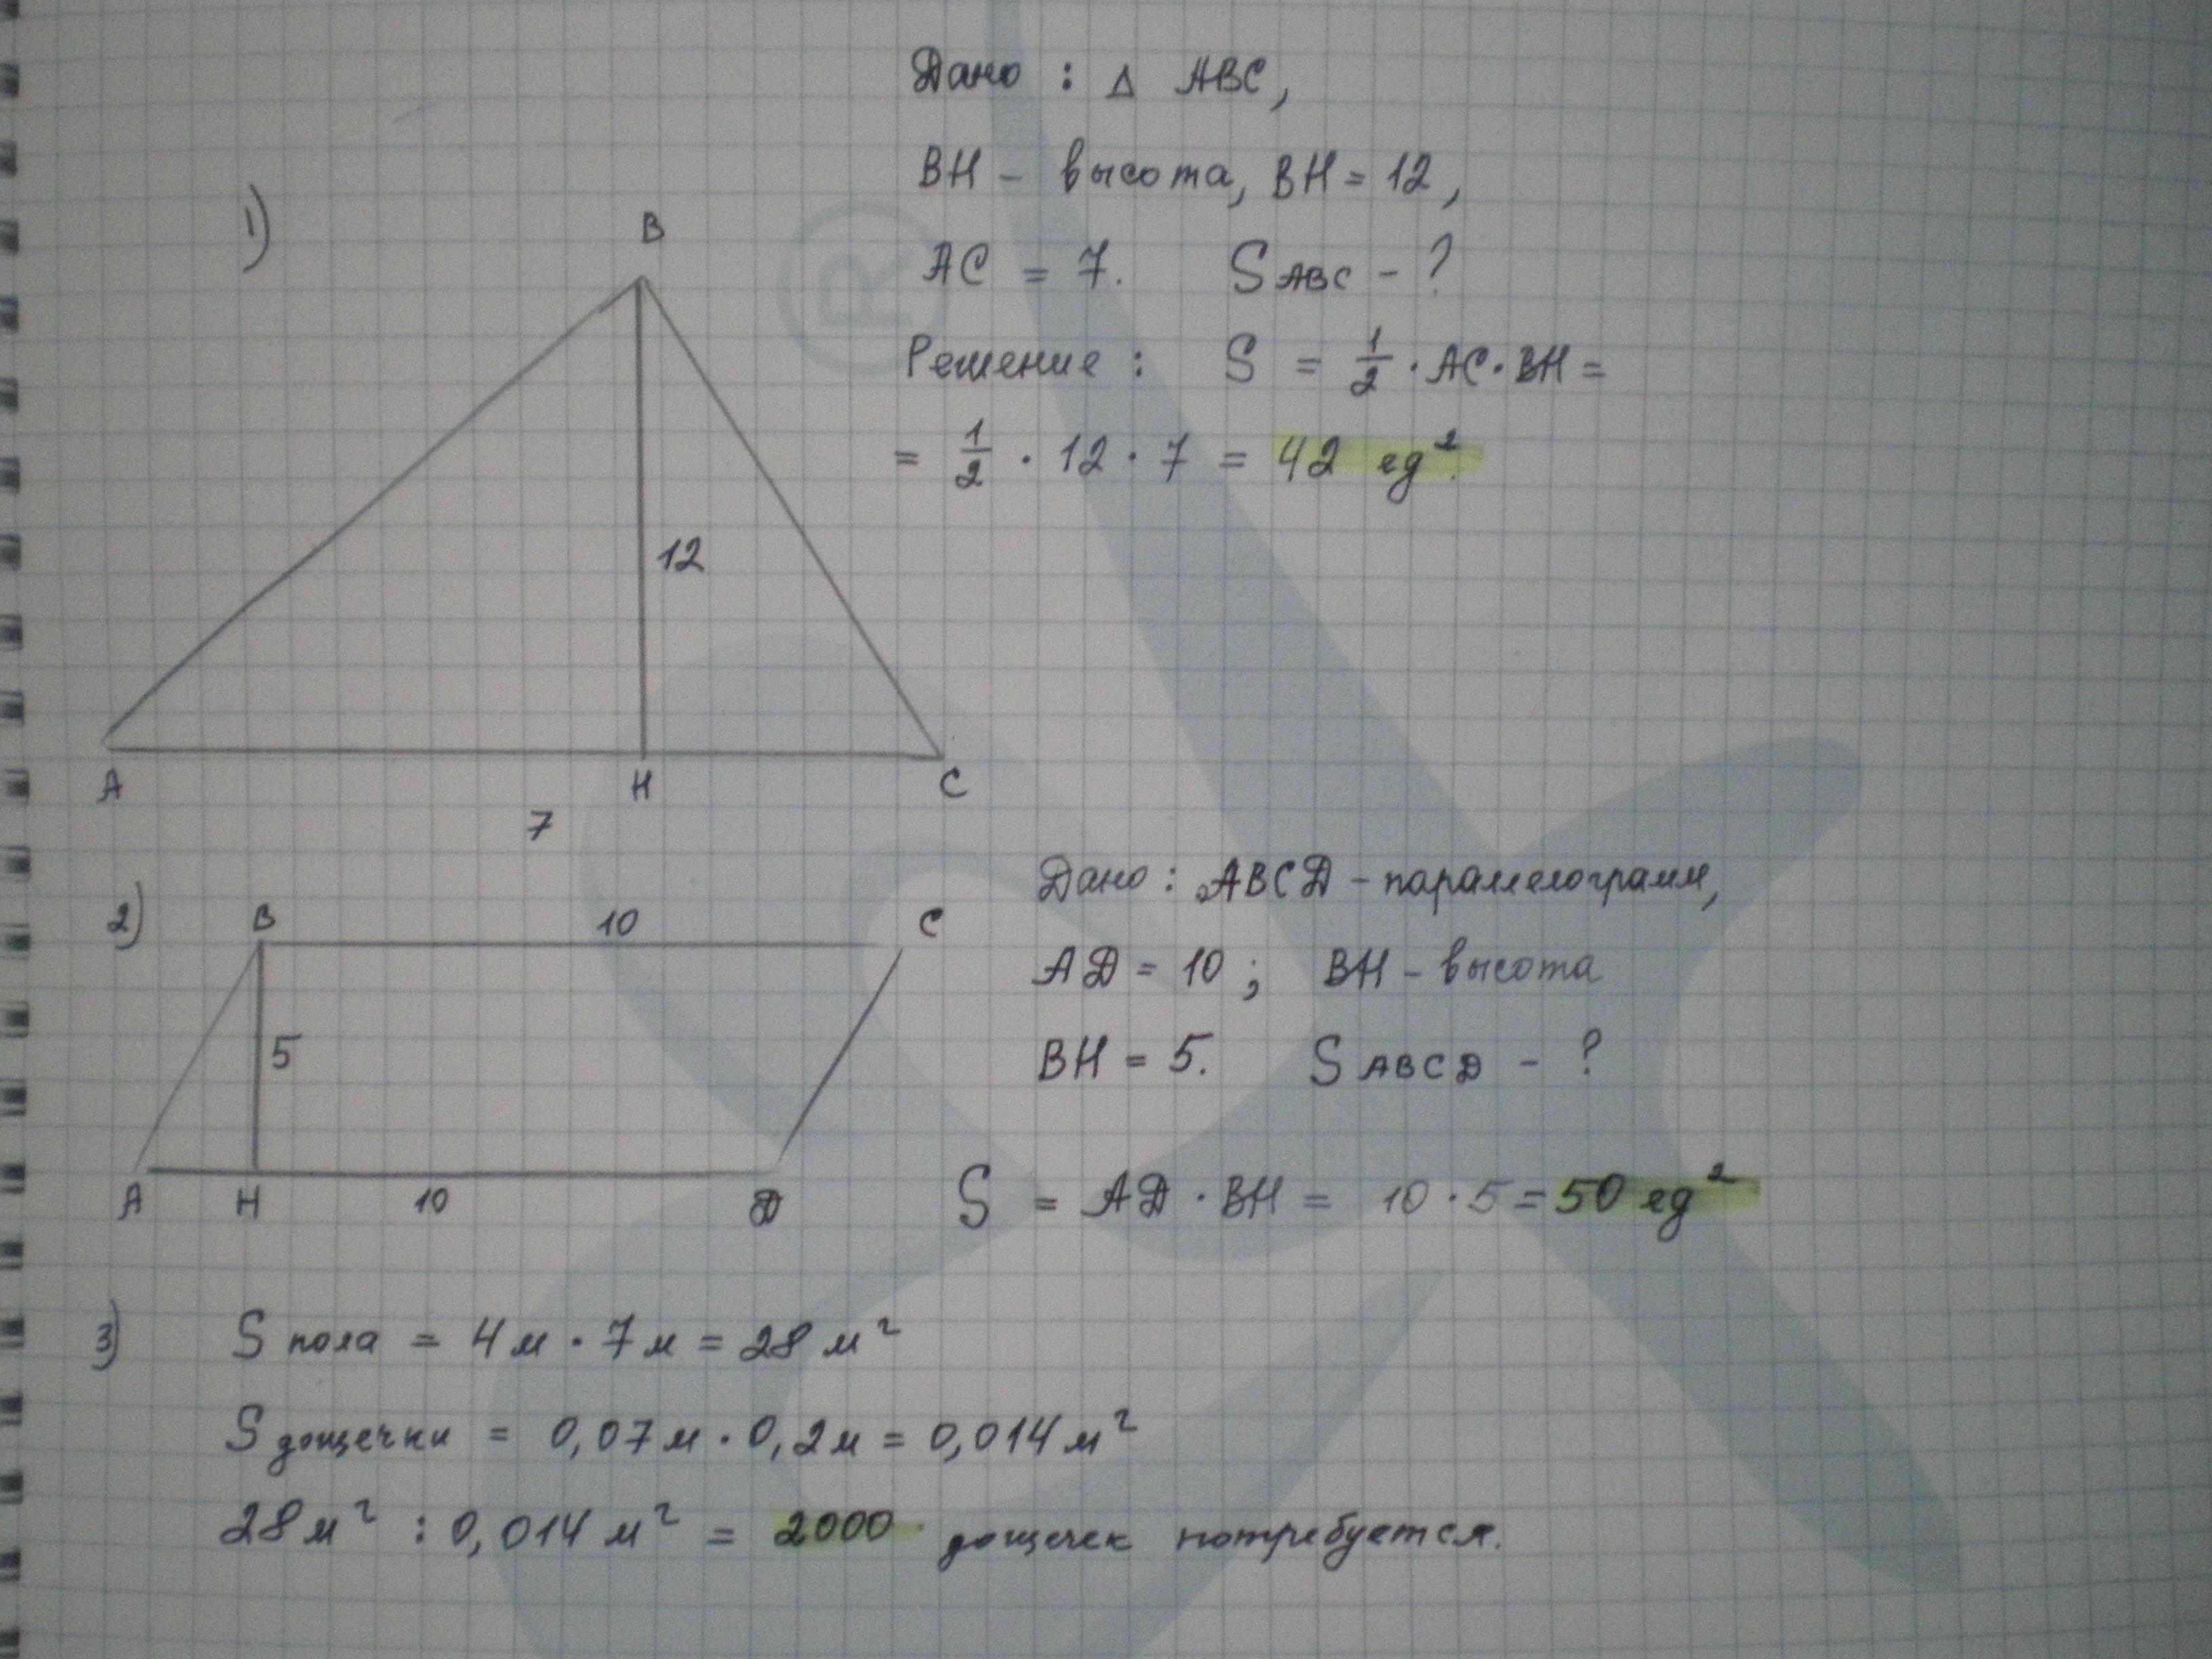 1)
Дано : Δ ABC,
BH – высота, BH = 12,
AC = 7. S ABC – ?
Решение : S = 1/2 · AC · BH =
= 1/2 · 12 · 7 = 42 ед².
B
12
A H C
7
2)
B 10 C
5
A H 10 D
Дано : ABCD – параллелограмм,
AD = 10 ; BH – высота
BH = 5. S ABCD – ?
S = AD · BH = 10 · 5 = 50 ед²
3) S пола = 4 м · 7 м = 28 м²
S дощечки = 0,07 м · 0,2 м = 0,014 м²
28 м² : 0,014 м² = 2000 дощечек потребуется.
®